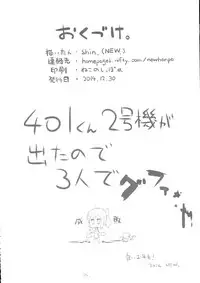 おくづけ。
描いたん：shin.(NEW)
連絡先：homepage1.nifty.com/newhanpe
印刷：ねこのしっぽ
発行日：2014.12.30
401くん2号機が
出たので
3人で